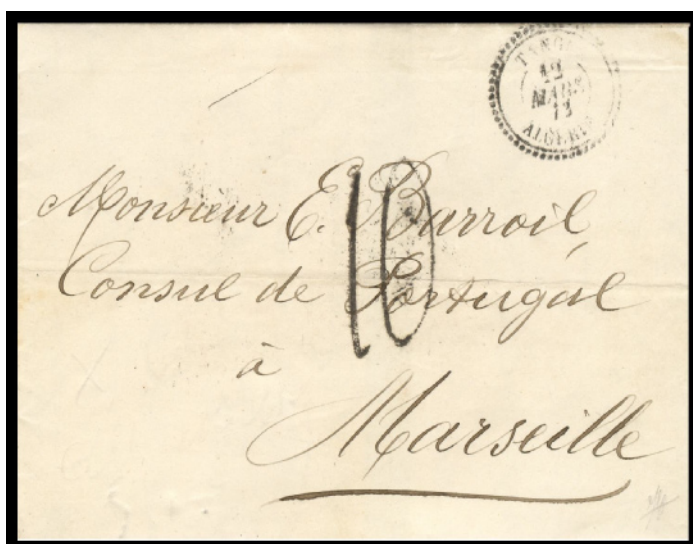 TANGER
12
MARS
73
ALGERIE
Monsieur E. Barroil,
Consul de Portugal
10
à
Marseille